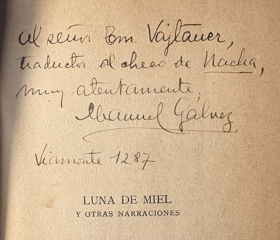 Al señor Em. Vajtauer,
traductor al checo de Nacha,
muy atentamente.
Manuel Gálvez
Viamonte 1287
LUNA DE MIEL
Y OTRAS NARRACIONES